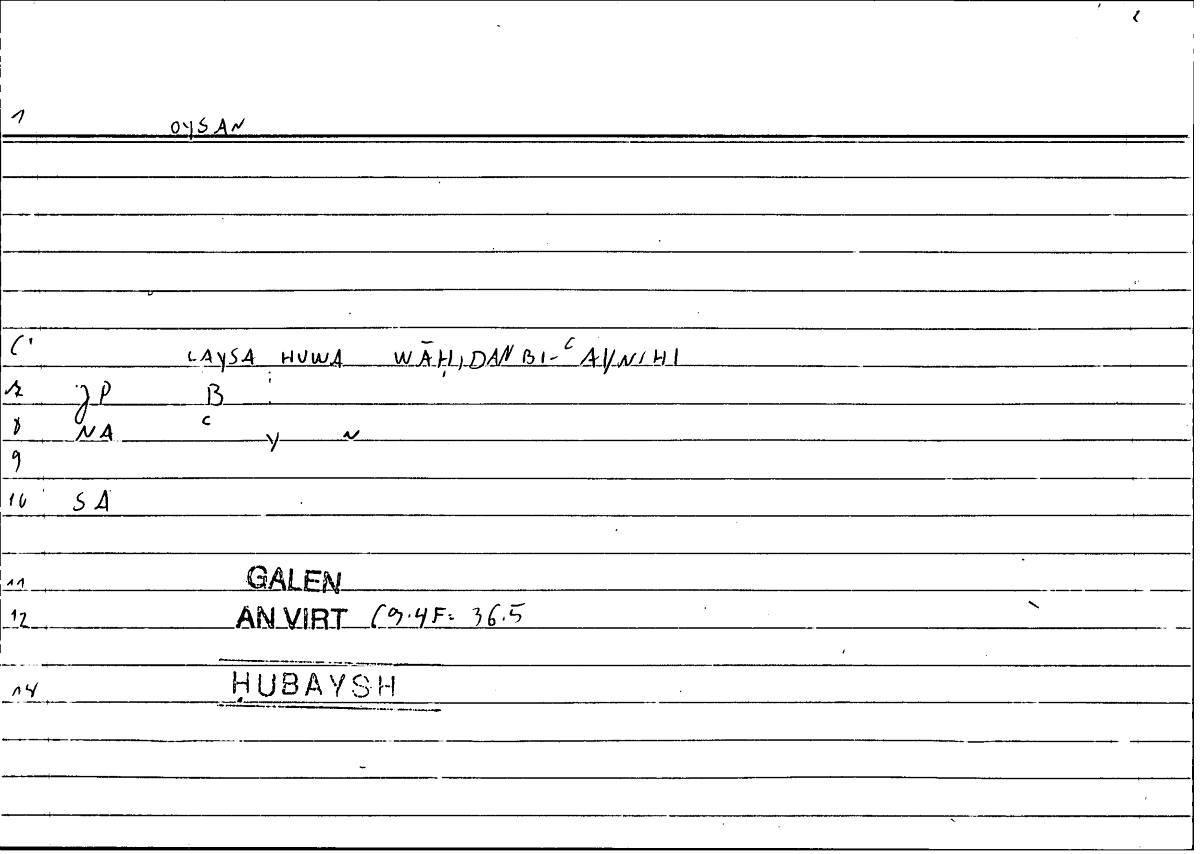 1 OYSAN
LAYSA HUWA WĀḤIDAN BI-ʿAYNIHI
JP B :
8 NA c y N
9
10 SA
11 GALEN
12 AN VIRT (9.4F: 36.5
14 ḤUBAYSH